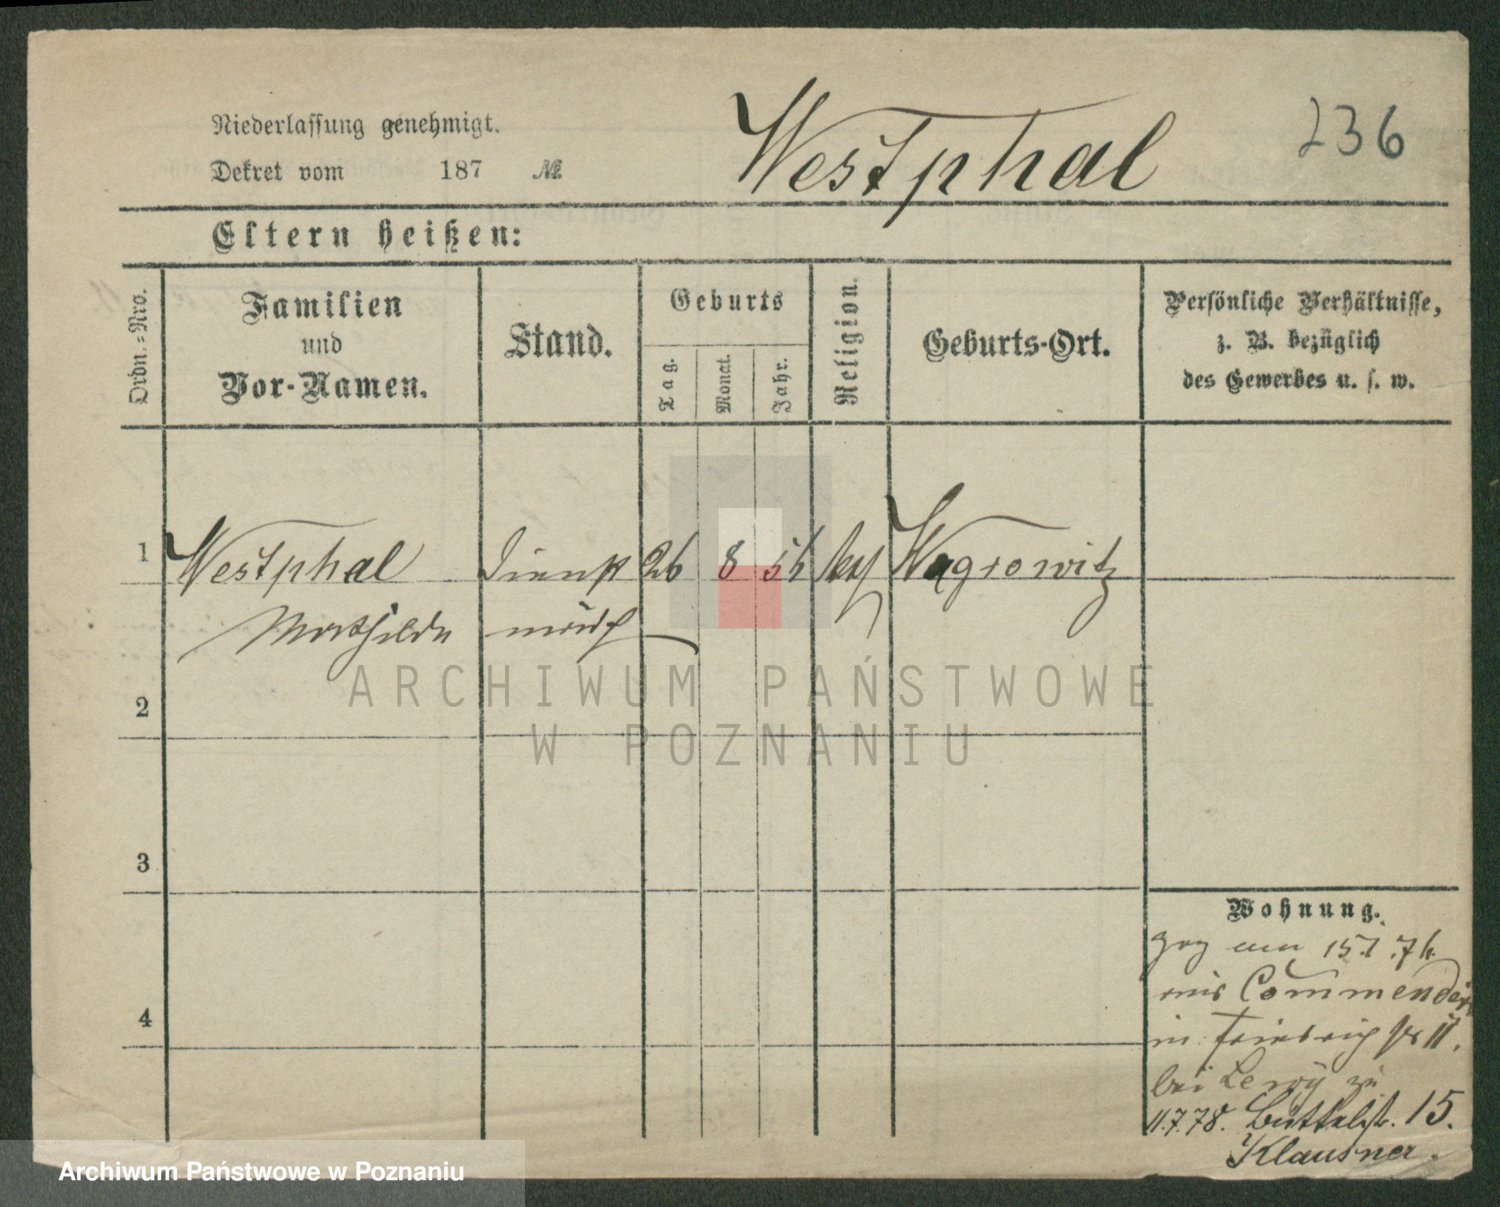 Niederlassung genehmigt.
Dekret vom 187 №
Westphal
236
Eltern heißen:
Ordn.-Nro.
Familien
und
Vor-Namen.
Stand.
Geburts
Tag.
Monat.
Jahr.
Religion.
Geburts-Ort.
Persönliche Verhältnisse,
z. B. bezüglich
des Gewerbes u. s. w.
1
Westphal Dienst 26 8 56 Wagrowitz
Mathilde mädch
2
3
4
Wohnung.
zog am 15.1.76
aus Commenderie
in Friedrich str 11.
bei Leroy zu
11.7.78. Büttelstr. 15.
Klausner.
ARCHIWUM PAŃSTWOWE
W POZNANIU
Archiwum Państwowe w Poznaniu